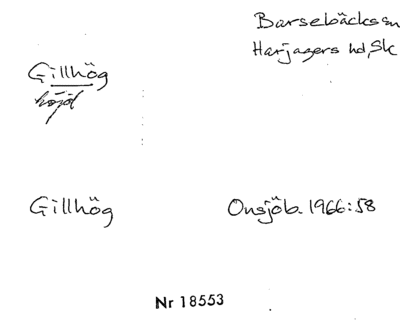 Barsebäckssn
Harjagers hd, Sk
Gillhög
höjd
Gillhög
Onsjöb. 1966:58
Nr 18553